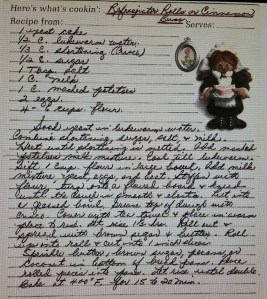 Here's what's cookin': Refrigerator Rolls or Cinnamon Buns
Recipe from: Serves:
1 yeast cake
1/2 C. lukewarm water
1/2 C. shortening (Crisco)
1/2 C. sugar
1 Tbsp. salt
1 C. milk
1 C. mashed potatoes
2 eggs
cups flour
Soak yeast in lukewarm water.
Combine shortening, sugar, salt, & milk.
Heat until shortening is melted. Add mashed
potatoes milk mixture. Cool till lukewarm.
Sift cups flour in large bowl. Add milk
mixture yeast eggs and beat. Stiffen with
flour, turn onto a floured board & knead
until the dough is smooth & elastic. Put into
a greased bowl, brush top of dough with
Crisco. Cover with tea towel & place in warm
place to rise. Let rise 1 1/2 hrs. Roll out &
spread with brown sugar & butter. Roll
up into roll & cut into 1 inch slices.
Sprinkle butter, brown sugar, pecans, or
coconut in bottom of pans. Place
rolled pieces into pans. Let rise until double.
Bake at 400°F. for 15 to 20 min.